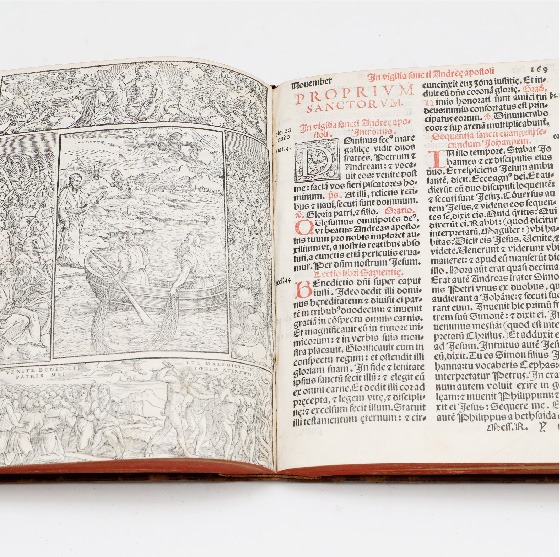 Nouember
In vigilia sancti Andreę apostoli
169
PROPRIVM
SANCTORVM.
In vigilia sancti Andreę apo-
stoli. Introitus.
Dominus secus mare
galileę vidit duos
fratres, Petrum &
Andream: & voca-
uit eos: venite post
me: faciā vos fieri piscatores ho-
minum. ps. At illi, relictis reti-
bus & naui, secuti sunt dominum.
Gloria patri, & filio. Oratio.
Quęsumus omnipotēs de⁹,
vt beatus Andreas aposto-
lus tuum pro nobis imploret au-
xilium, a nostris reatibus abso-
luti, a cunctis etiam periculis erua-
mur. Per dñm nostrum Jesum.
Lectio libri Sapientię.
Benedictio dñi super caput
iusti. Ideo dedit illi domi-
nus hereditatem: & diuisit ei par-
tem in tribub⁹ duodecim: & inuenit
gratiā in cōspectu omnis carnis.
Et magnificauit eū in timore ini-
micorum: & in verbis suis mon-
stra placauit. Glorificauit eum in
conspectu regum: & ostendit illi
gloriam suam. In fide & lenitate
ipsius sanctū fecit illū: & elegit eū
ex omni carne. Et dedit illi corā
pręcepta, & legem vitę, & discipli-
nę: & excelsum fecit illum. Statuit
illi testamentum ęternum: & cir-
cuncinxit eum zona iustitię. Et in-
duit eū dñs coronā glorię. Grad.
Nimis honorati sunt amici tui
nimis confortatus est prin-
cipatus eorum. Dinumerabo
eos: & sup arenā multiplicabunt.
Sequentia sancti euangelij se-
cundum Johannem.
In illo tempore. Stabat Jo-
hannes: & ex discipulis eius
duo. Et respiciens Jesum ambu-
lantē, dicit. Ecce agn⁹ dei. Et au-
dierūt eū duo discipuli loquentē
& secuti sunt Jesum. Cōuersus
tem Jesus, & videns eos sequen-
tes se, dixit eis. Quid quęritis: Qui
dixerūt ei. Rabbi: (quod dicitur
interpretatū, Magister:) vbi ha-
bitas: Dicit eis Jesus. Venite, &
videte. Venerunt & viderunt vbi
maneret: & apud eū manserūt die
illo. Hora aūt erat quasi decima.
Erat autē Andreas frater Simo-
nis Petri vnus ex duobus, qui
audierant a Johāne: & secuti fue-
rant eum. Inuenit hic primū fra-
trem suū Simonē: & dixit ei. In-
uenimus messiā: (quod est inter-
pretatū Christus. Et adduxit eū
ad Jesum. Intuitus autē Jesus
eū, dixit. Tu es Simon filius Jo-
hanna: tu vocaberis Cephas:
interpretatur Petrus. In cra-
stinum autem voluit exire in ga-
lileam: & inuenit Philippum: &
dixit ei Jesus: Sequere me. Erat
autē Philippus a bethsaida
Mess. R. Y